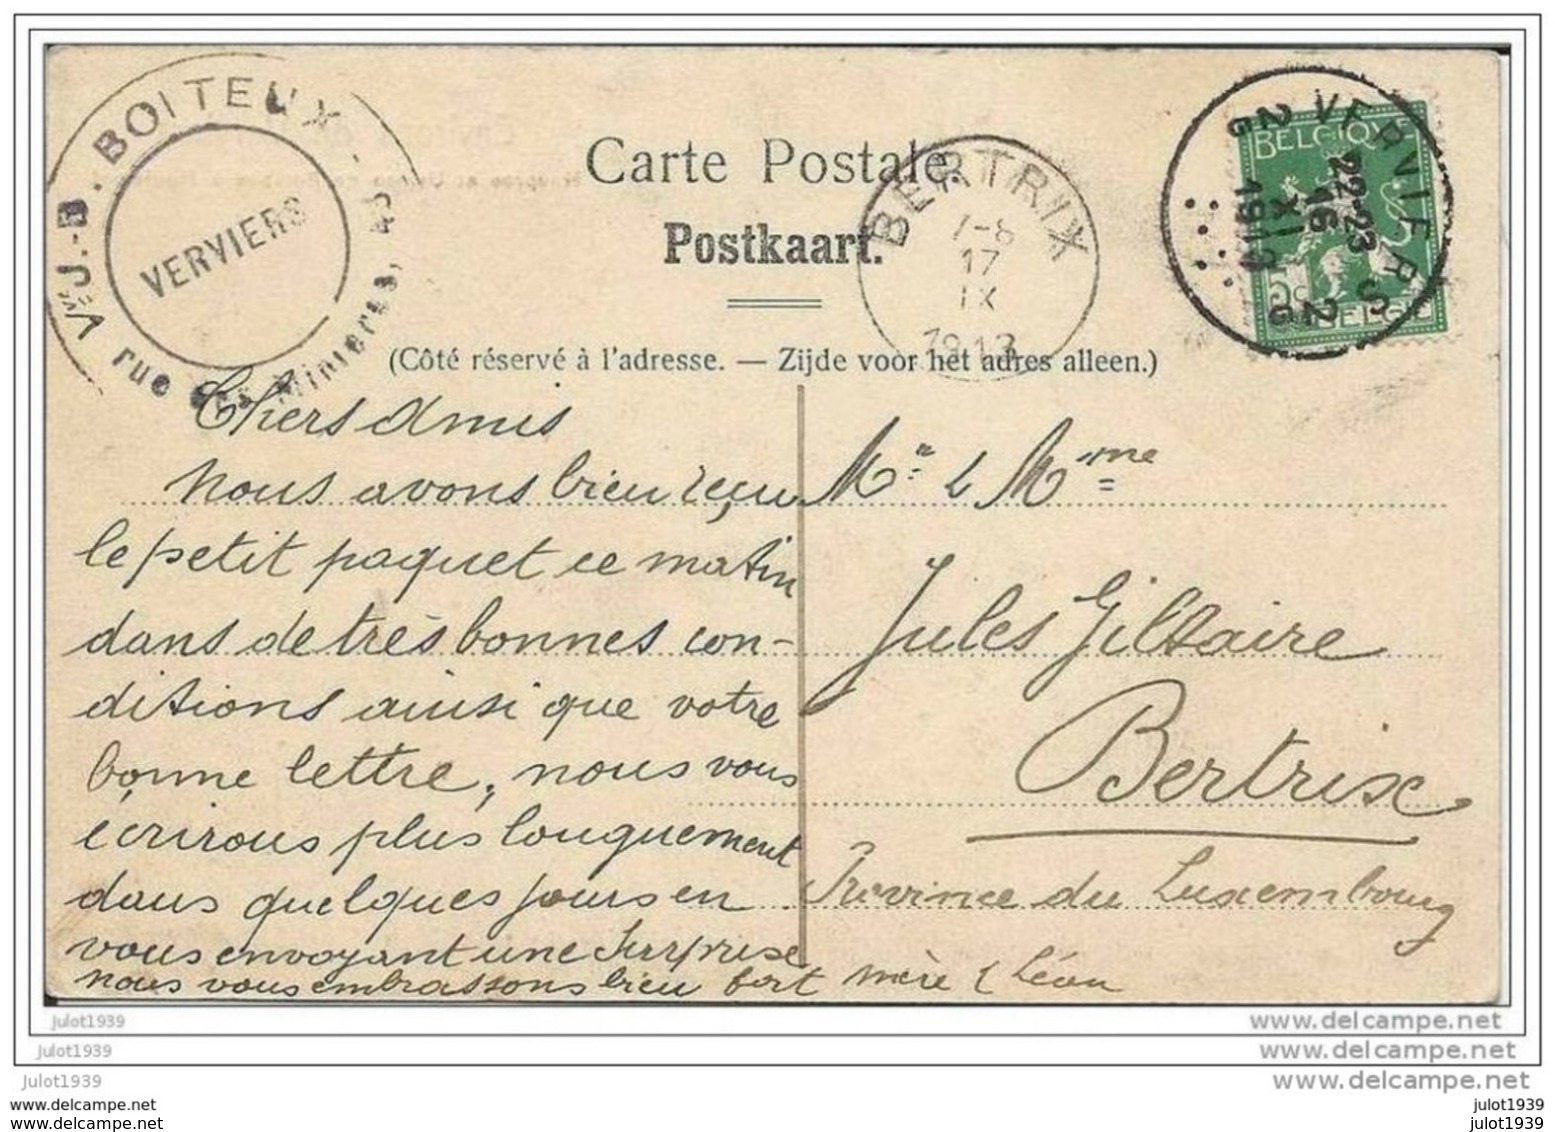 Vve J.-B. BOITEUX
VERVIERS
rue des Minières,
Carte Postale.
Postkaart.
BERTRIX
7-8
17
IX
1913
VERVIERS
22-23
16
XI
1913
BELGIQUE
5c
BELGIE
(Côté réservé à l'adresse. — Zijde voor het adres alleen.)
Chers Amis
nous avons bien reçu
le petit paquet ce matin
dans de très bonnes con-
ditions ainsi que votre
bonne lettre, nous vous
écrirons plus longuement
dans quelques jours en
vous envoyant une Surprise
nous vous embrassons bien fort mère & Léon
Mr & Mme
Jules Giltaire
Bertrix
Province du Luxembourg
julot1939
www.delcampe.net
julot1939
www.delcampe.net
julot1939
www.delcampe.net
www.delcampe.net
julot1939
www.delcampe.net
julot1939